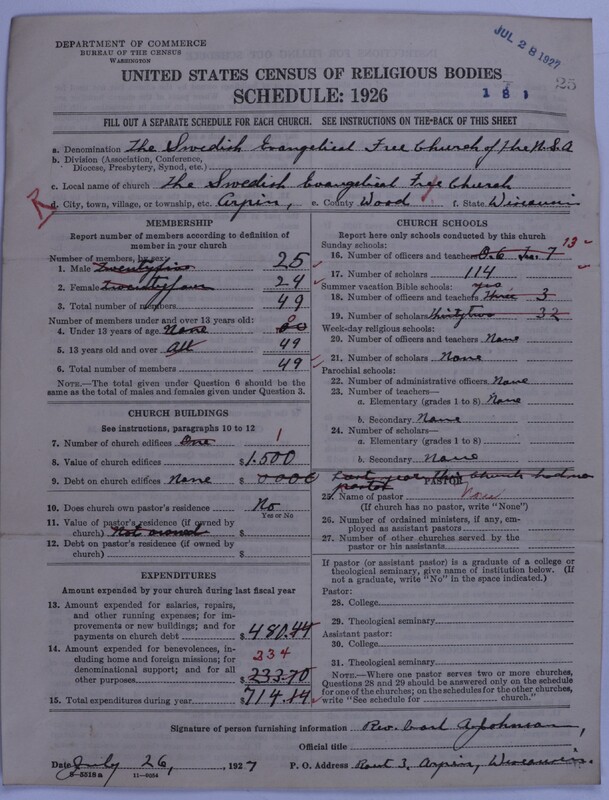 DEPARTMENT OF COMMERCE
BUREAU OF THE CENSUS
WASHINGTON
JUL 28 1927
25
UNITED STATES CENSUS OF RELIGIOUS BODIES
SCHEDULE: 1926
181
FILL OUT A SEPARATE SCHEDULE FOR EACH CHURCH. SEE INSTRUCTIONS ON THE BACK OF THIS SHEET
a. Denomination The Swedish Evangelical Free Church of the U.S.A
b. Division (Association, Conference,
Diocese, Presbytery, Synod, etc.)
c. Local name of church The Swedish Evangelical Free Church
R
d. City, town, village, or township, etc. Arpin, e. County Wood f. State Wisconsin
MEMBERSHIP
Report number of members according to definition of
member in your church
Number of members, by sex:
1. Male twentyfive 25
2. Female twentyfour 24
3. Total number of members 49
Number of members under and over 13 years old:
4. Under 13 years of age None 0
5. 13 years old and over All 49
6. Total number of members 49
NOTE.—The total given under Question 6 should be the
same as the total of males and females given under Question 3.
CHURCH BUILDINGS
See instructions, paragraphs 10 to 12
7. Number of church edifices One 1
8. Value of church edifices $1.500
9. Debt on church edifices None $0000
10. Does church own pastor's residence No
Yes or No
11. Value of pastor's residence (if owned by
church) Not owned $
12. Debt on pastor's residence (if owned by
church) $
EXPENDITURES
Amount expended by your church during last fiscal year
13. Amount expended for salaries, repairs,
and other running expenses; for im-
provements or new buildings; and for
payments on church debt $480.44
14. Amount expended for benevolences, in-
cluding home and foreign missions; for
denominational support; and for all
234
other purposes $233.70
15. Total expenditures during year $714.14
CHURCH SCHOOLS
Report here only schools conducted by this church
Sunday schools:
13
16. Number of officers and teachers O. 6 7
17. Number of scholars 114
Summer vacation Bible schools: yes
18. Number of officers and teachers Three 3
19. Number of scholars thirtytwo 32
Week-day religious schools:
20. Number of officers and teachers None
21. Number of scholars None
Parochial schools:
22. Number of administrative officers None
23. Number of teachers—
a. Elementary (grades 1 to 8) None
b. Secondary None
24. Number of scholars—
a. Elementary (grades 1 to 8)
b. Secondary None
PASTOR
Last year this church had no
pastor
25. Name of pastor None
(If church has no pastor, write "None")
26. Number of ordained ministers, if any, em-
ployed as assistant pastors
27. Number of other churches served by the
pastor or his assistants
If pastor (or assistant pastor) is a graduate of a college or
theological seminary, give name of institution below. (If
not a graduate, write "No" in the space indicated.)
Pastor:
28. College
29. Theological seminary
Assistant pastor:
30. College
31. Theological seminary
NOTE.—Where one pastor serves two or more churches,
Questions 28 and 29 should be answered only on the schedule
for one of the churches; on the schedules for the other churches,
write "See schedule for church."
Signature of person furnishing information Rev. Carl A Johnson,
Official title
Date July 26, 1927 P. O. Address Rout 3, Arpin, Wisconsin.
8-5518a 11-9034